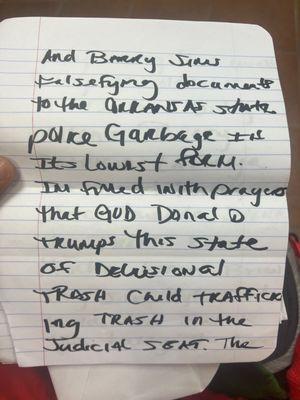 And BARRY Sims
Falsifying documents
to the ARKANSAS state
police Garbage In
Its Lowest FORM.
Im filled with prayers
that GOD Donald
trumps This State
of Delusional
TRASH Child TRAFFICK
ing TRASH in the
Judicial SEAT. The